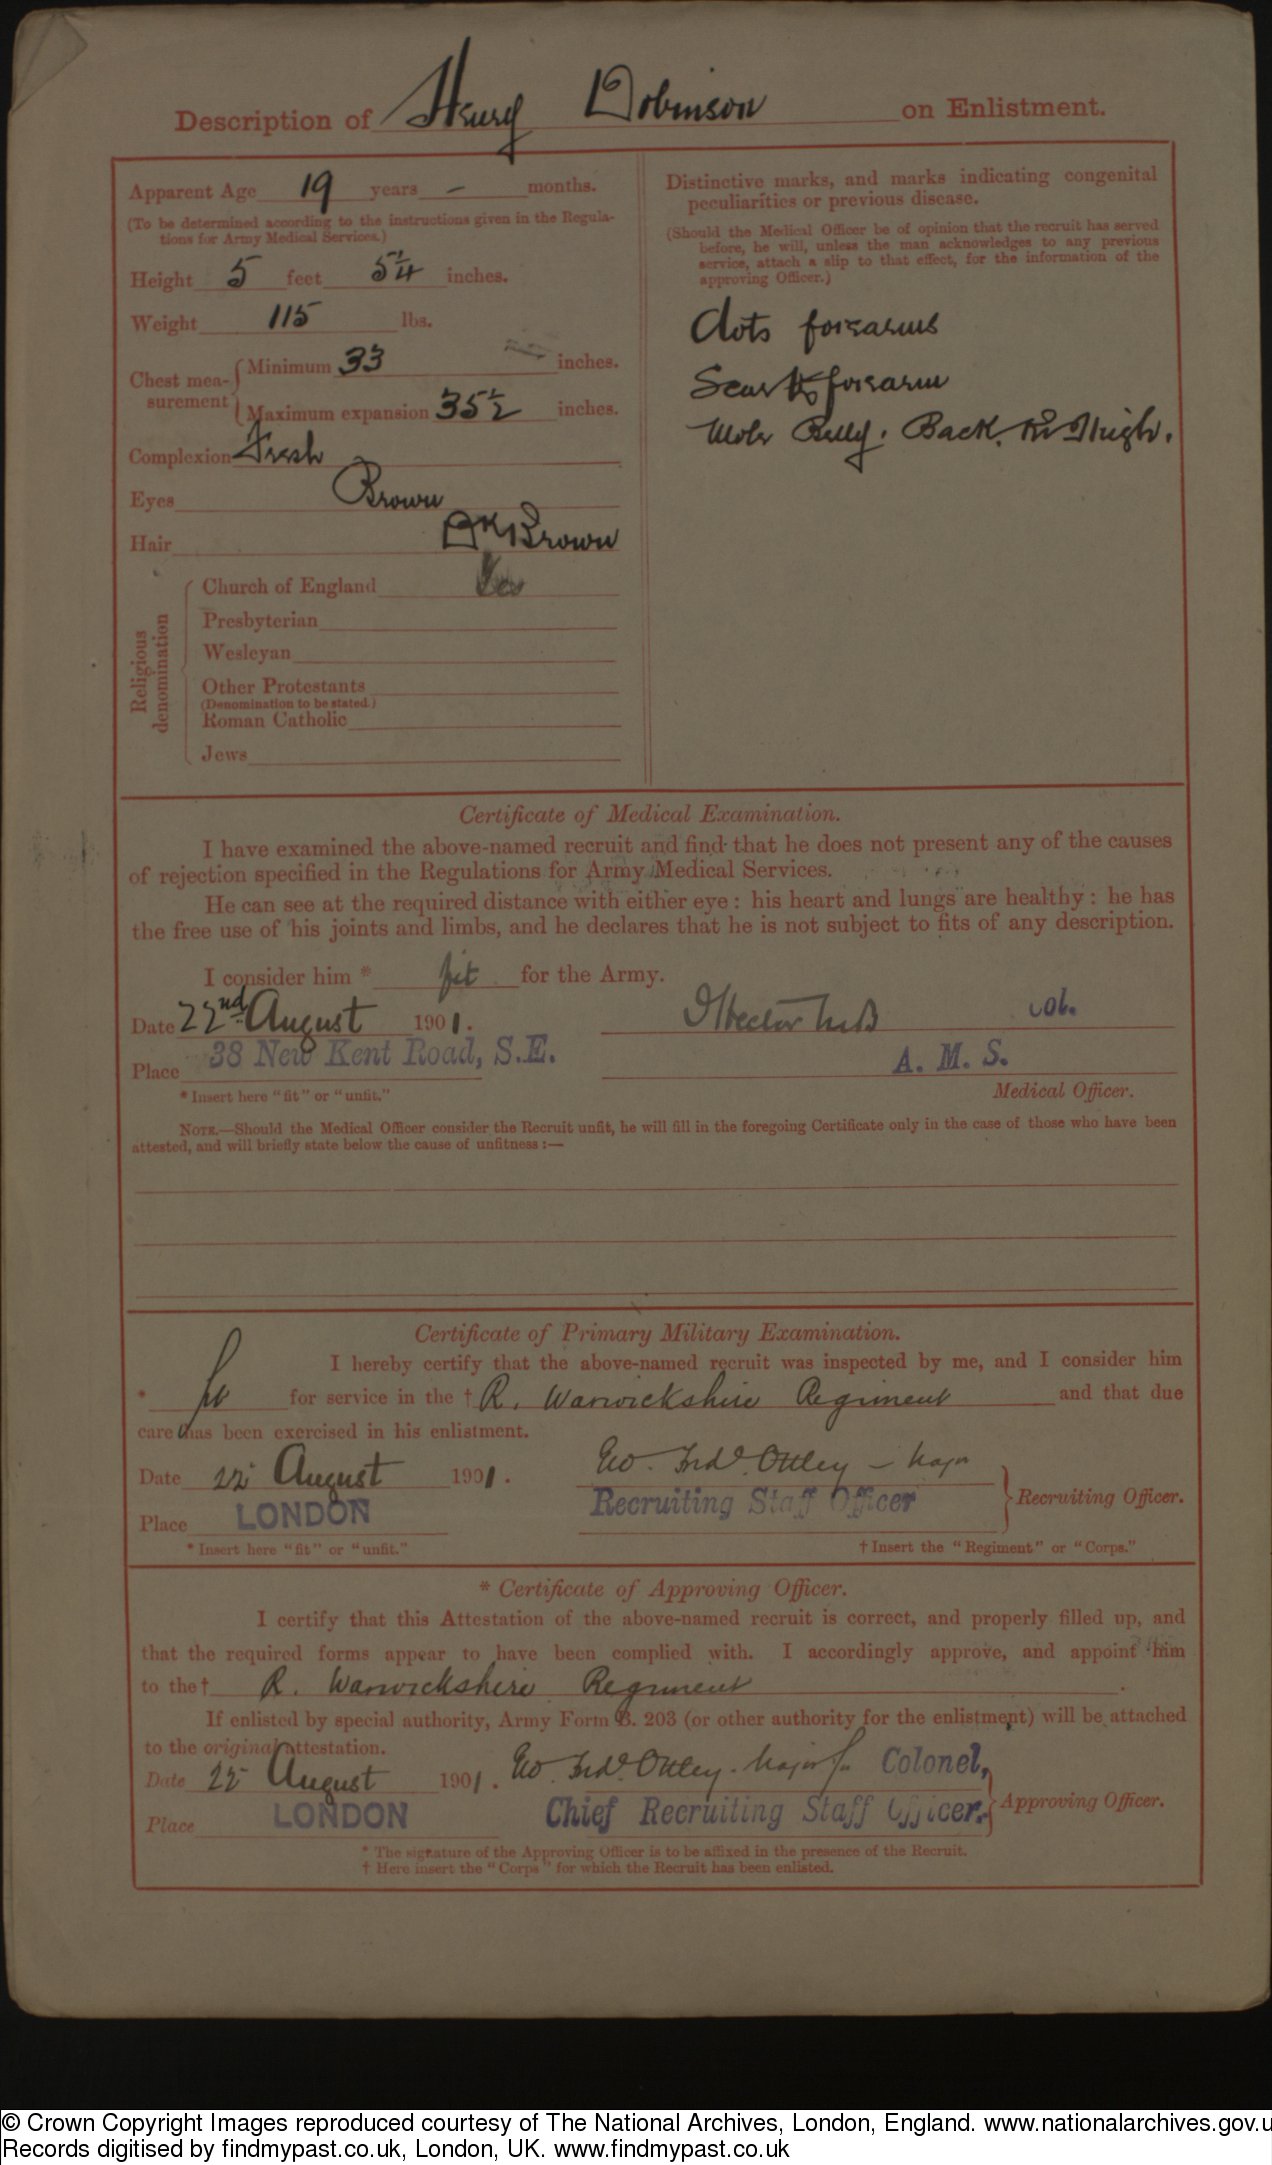 Description of Henry Dobinson on Enlistment.
Apparent Age 19 years — months.
(To be determined according to the instructions given in the Regula-
tions for Army Medical Services.)
Height 5 feet 5¼ inches.
Weight 115 lbs.
Chest mea-
surement
Minimum 33 inches.
Maximum expansion 35½ inches.
Complexion Fresh
Eyes Brown
Hair Dk Brown
Religious
denomination
Church of England Yes
Presbyterian
Wesleyan
Other Protestants
(Denomination to be stated.)
Roman Catholic
Jews
Distinctive marks, and marks indicating congenital
peculiarities or previous disease.
(Should the Medical Officer be of opinion that the recruit has served
before, he will, unless the man acknowledges to any previous
service, attach a slip to that effect, for the information of the
approving Officer.)
dots forearms
Scar forearm
Mole Belly. Back. Thigh.
Certificate of Medical Examination.
I have examined the above-named recruit and find that he does not present any of the causes
of rejection specified in the Regulations for Army Medical Services.
He can see at the required distance with either eye : his heart and lungs are healthy : he has
the free use of his joints and limbs, and he declares that he is not subject to fits of any description.
I consider him * fit for the Army.
Date 22nd August 1901.
Col.
Place 38 New Kent Road, S.E.
A. M. S.
* Insert here "fit" or "unfit."
Medical Officer.
NOTE.—Should the Medical Officer consider the Recruit unfit, he will fill in the foregoing Certificate only in the case of those who have been
attested, and will briefly state below the cause of unfitness :—
Certificate of Primary Military Examination.
I hereby certify that the above-named recruit was inspected by me, and I consider him
* fit for service in the † R. Warwickshire Regiment and that due
care has been exercised in his enlistment.
Date 22 August 1901.
Geo. Fredk. Ottley – Major
Recruiting Staff Officer
Recruiting Officer.
Place LONDON
* Insert here "fit" or "unfit."
† Insert the "Regiment" or "Corps."
* Certificate of Approving Officer.
I certify that this Attestation of the above-named recruit is correct, and properly filled up, and
that the required forms appear to have been complied with. I accordingly approve, and appoint him
to the † R. Warwickshire Regiment.
If enlisted by special authority, Army Form B. 203 (or other authority for the enlistment) will be attached
to the original attestation.
Date 22 August 1901.
Geo. Fredk. Ottley. Major for Colonel,
Place LONDON
Chief Recruiting Staff Officer.
Approving Officer.
* The signature of the Approving Officer is to be affixed in the presence of the Recruit.
† Here insert the "Corps" for which the Recruit has been enlisted.
© Crown Copyright Images reproduced courtesy of The National Archives, London, England. www.nationalarchives.gov.u
Records digitised by findmypast.co.uk, London, UK. www.findmypast.co.uk